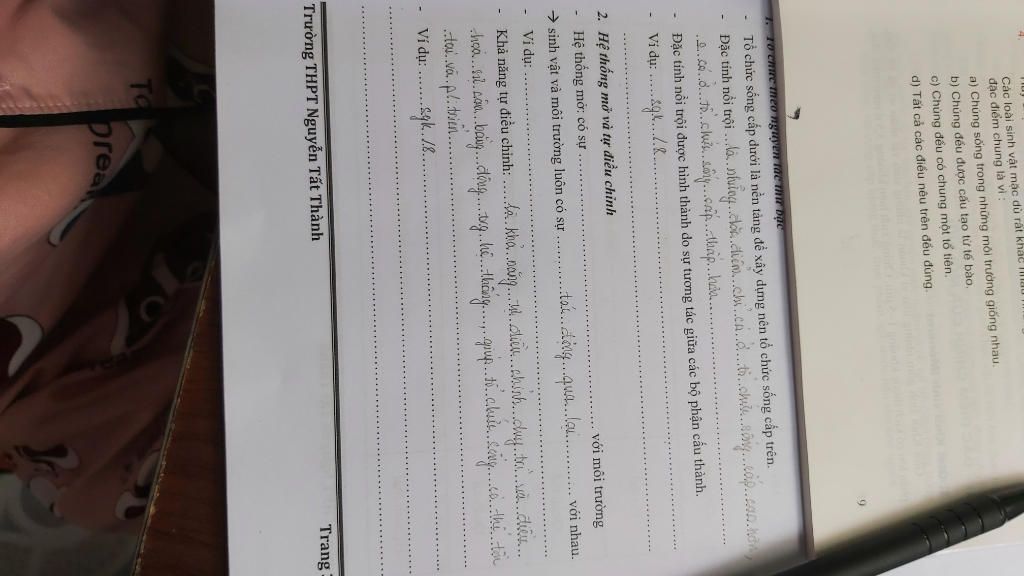 4.
Các loài sinh vật mặc dù rất khác nhau
đặc điểm chung là vì :
a) Chúng sống trong những môi trường giống nhau.
b) Chúng đều được cấu tạo từ tế bào.
c) Chúng đều có chung một tổ tiên.
d) Tất cả các điều nêu trên đều đúng.
9
1. Tổ chức theo nguyên tắc thứ bậc
- Tổ chức sống cấp dưới là nền tảng để xây dựng nên tổ chức sống cấp trên.
- Đặc tính nổi trội ..là những đặc điểm chỉ có ở tổ chức sống cấp cao hơn,
mà có ở tổ chức sống cấp thấp hơn
- Đặc tính nổi trội được hình thành do sự tương tác giữa các bộ phận cấu thành.
- Ví dụ: ......sgk/18
2. Hệ thống mở và tự điều chỉnh
- Hệ thống mở: có sự ........ với môi trường
→ sinh vật và môi trường luôn có sự ........tác động qua lại........ với nhau.
- Ví dụ:
- Khả năng tự điều chỉnh: ....là khả năng tự điều chỉnh duy trì và điều
hoà sự cân bằng động trg hệ thống, giúp tổ chức sống có thể tồn
tại và p/triển
- Ví dụ: ......sgk/18
Trường THPT Nguyễn Tất Thành
Trang